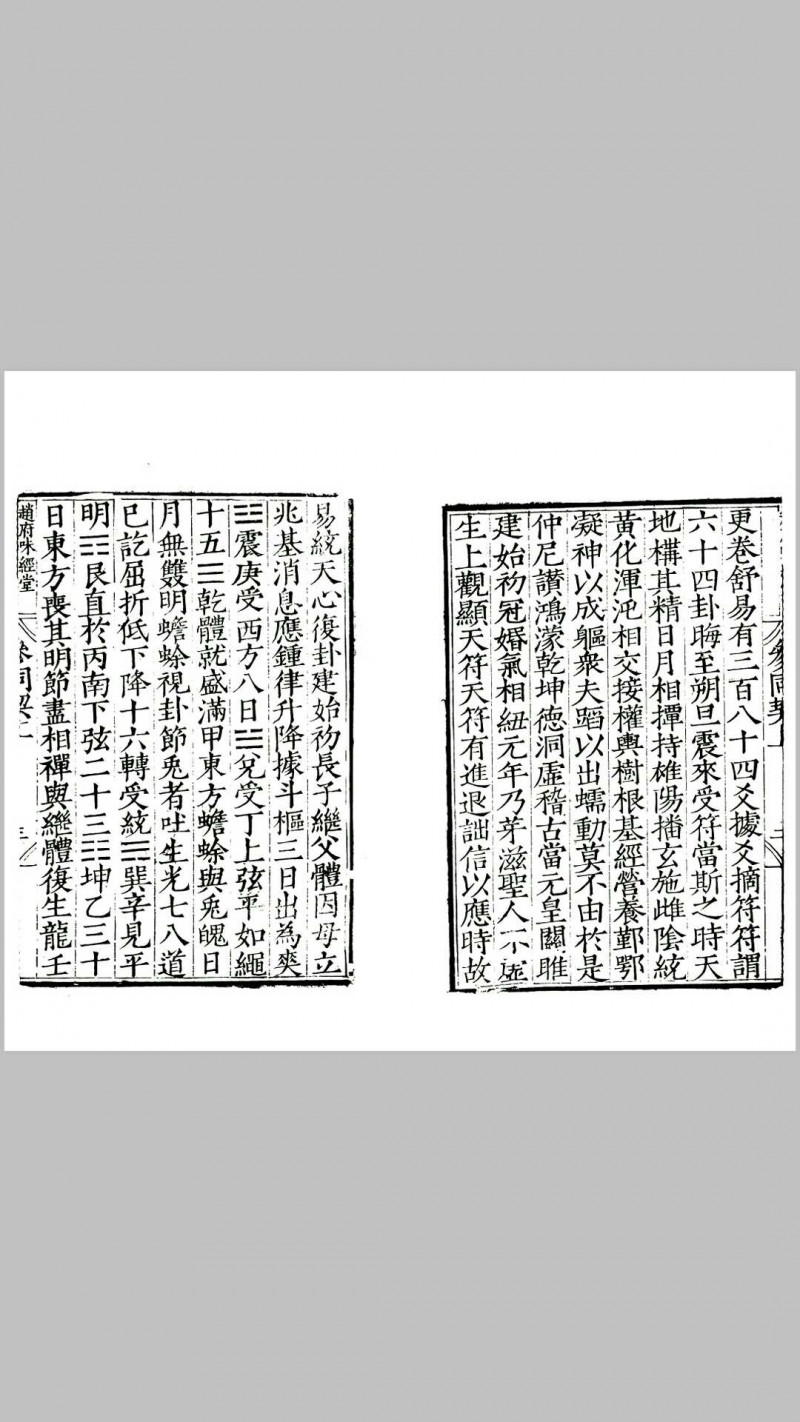 更卷舒易有三百八十四爻據爻摘符符謂
六十四卦晦至朔旦震來受符當斯之時天
地構其精日月相撢持雄陽播玄施雌陰統
黃化渾沌相交接權輿樹根基經營養鄞鄂
凝神以成軀衆夫蹈以出蠕動莫不由於是
仲尼讃鴻蒙乾坤德洞虛稽古當元皇關雎
建始初冠婚氣相紐元年乃芽滋聖人不虛
生上觀顯天符天符有進退詘信以應時故
參同契上
易統天心復卦建始初長子繼父體因母立
兆基消息應鍾律升降據斗樞三日出為爽
☳震庚受西方八日☱兌受丁上弦平如繩
十五☰乾體就盛滿甲東方蟾蜍與兎魄日
月無雙明蟾蜍視卦節兎者吐生光七八道
已訖屈折低下降十六轉受統☴巽辛見平
明☶艮直於丙南下弦二十三☷坤乙三十
日東方喪其明節盡相禪與繼體復生龍壬
趙府味經堂
參同契上 三